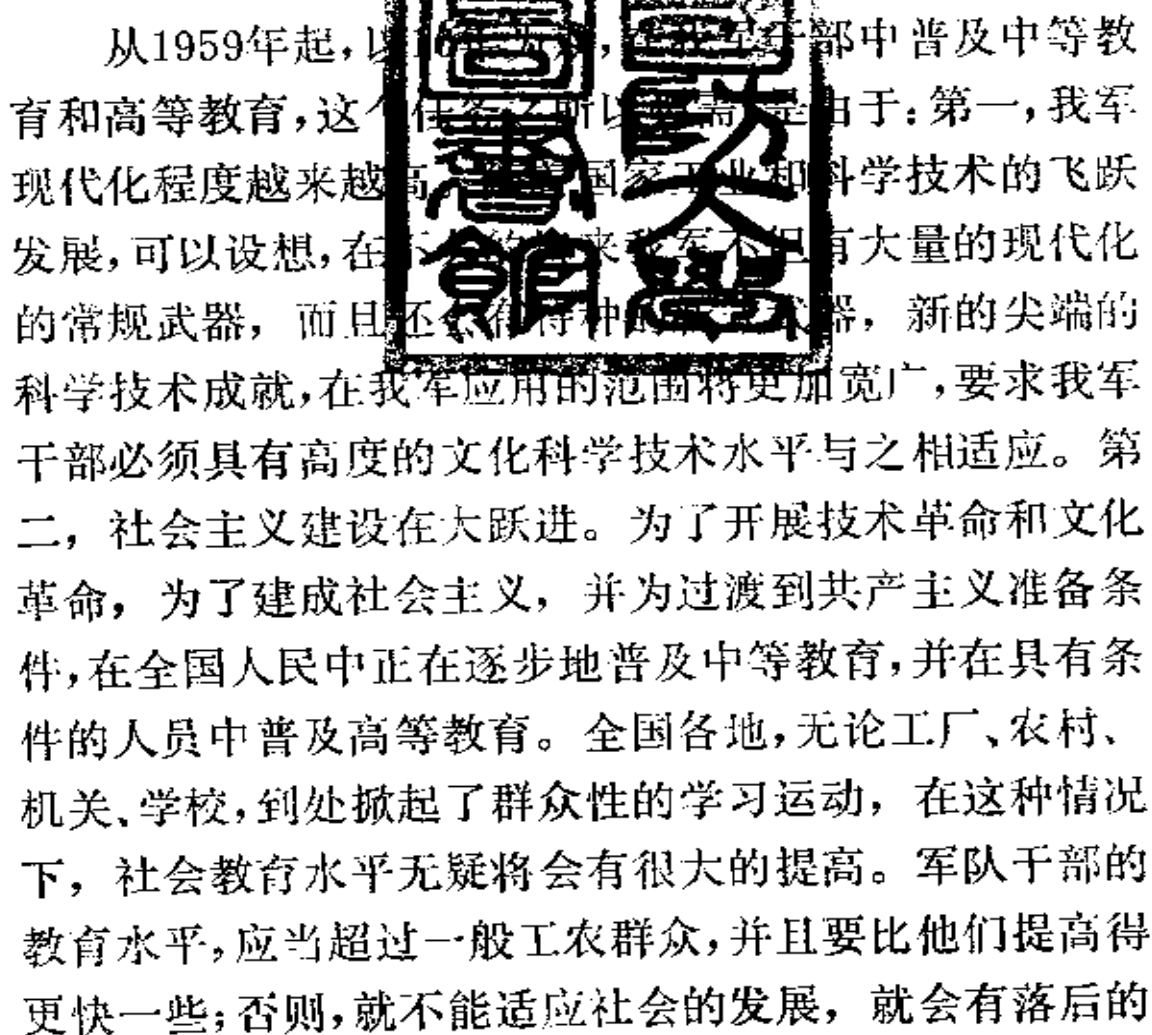 从1959年起，以，部中普及中等教
育和高等教育，这个任务之所以需是由于：第一，我军
现代化程度越来越高国家工业和科学技术的飞跃
发展，可以设想，在来我军不但有大量的现代化
的常规武器，而且还会有特种武器，新的尖端的
科学技术成就，在我军应用的范围将更加宽广，要求我军
干部必须具有高度的文化科学技术水平与之相适应。第
二，社会主义建设在大跃进。为了开展技术革命和文化
革命，为了建成社会主义，并为过渡到共产主义准备条
件，在全国人民中正在逐步地普及中等教育，并在具有条
件的人员中普及高等教育。全国各地，无论工厂、农村、
机关、学校，到处掀起了群众性的学习运动，在这种情况
下，社会教育水平无疑将会有很大的提高。军队干部的
教育水平，应当超过一般工农群众，并且要比他们提高得
更快一些；否则，就不能适应社会的发展，就会有落后的